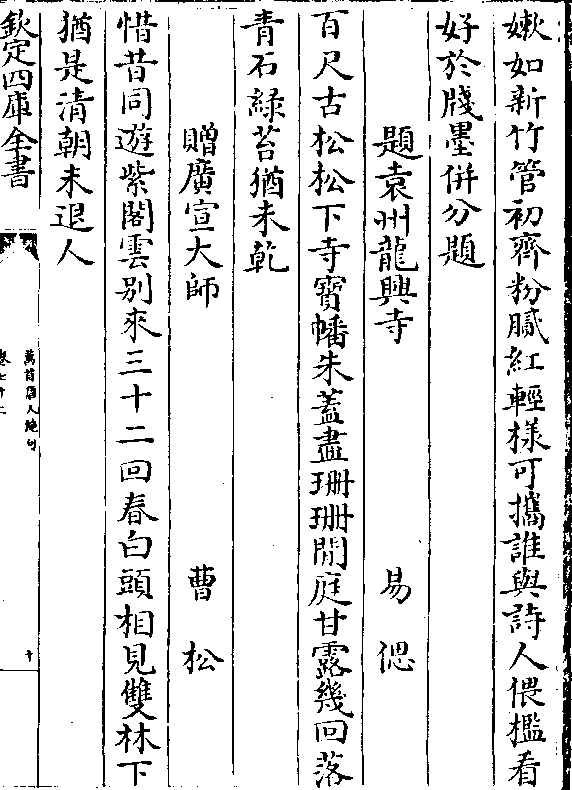 嫩如新竹管初齊粉膩紅輕様可攜誰與詩人偎檻看
好於牋墨併分題
題袁州龍興寺　易偲
百尺古松松下寺寳幡朱蓋盡珊珊閒庭甘露幾回落
青石緑苔猶未乾
贈廣宣大師　曹松
惜昔同遊紫閣雲别來三十二回春白頭相見雙林下
猶是清朝未退人
欽定四庫全書
萬首唐人絶句
卷七十二
十